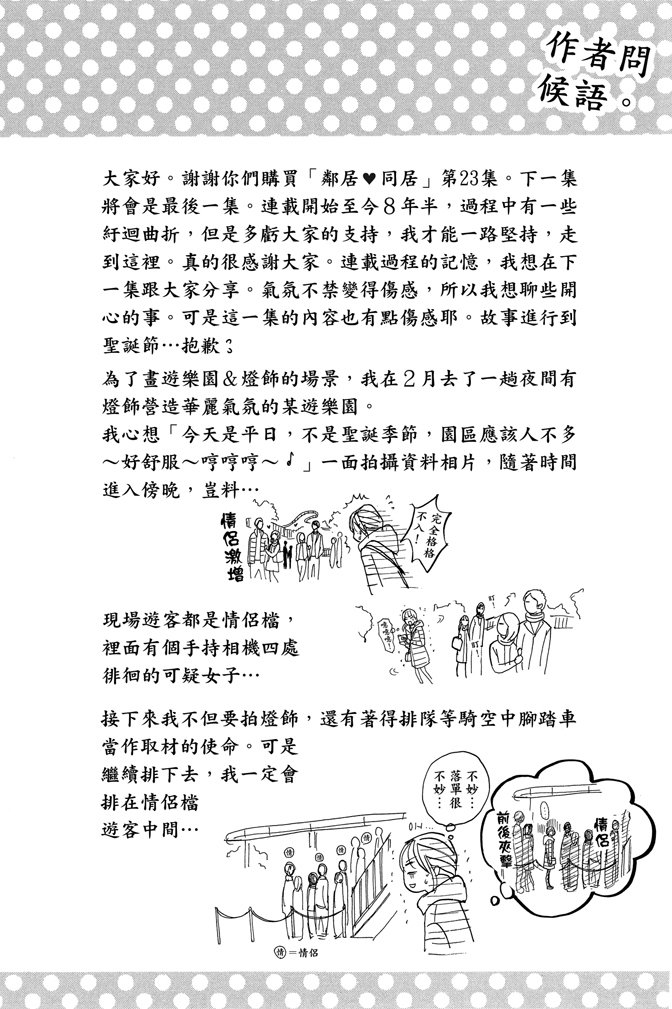 作者問
候語。
大家好。謝謝你們購買「鄰居♥同居」第23集。下一集
將會是最後一集。連載開始至今８年半，過程中有一些
紆迴曲折，但是多虧大家的支持，我才能一路堅持，走
到這裡。真的很感謝大家。連載過程的記憶，我想在下
一集跟大家分享。氣氛不禁變得傷感，所以我想聊些開
心的事。可是這一集的內容也有點傷感耶。故事進行到
聖誕節…抱歉？
為了畫遊樂園＆燈飾的場景，我在２月去了一趟夜間有
燈飾營造華麗氣氛的某遊樂園。
我心想「今天是平日，不是聖誕季節，園區應該人不多
～好舒服～哼哼哼～♪」一面拍攝資料相片，隨著時間
進入傍晚，豈料…
完全格格
不入！
情侶激增
現場遊客都是情侶檔，
裡面有個手持相機四處
徘徊的可疑女子…
接下來我不但要拍燈飾，還有著得排隊等騎空中腳踏車
當作取材的使命。可是
繼續排下去，我一定會
排在情侶檔
遊客中間…
不妙…
落單很
不妙…
情侶
前後夾擊
情
情
情
情＝情侶